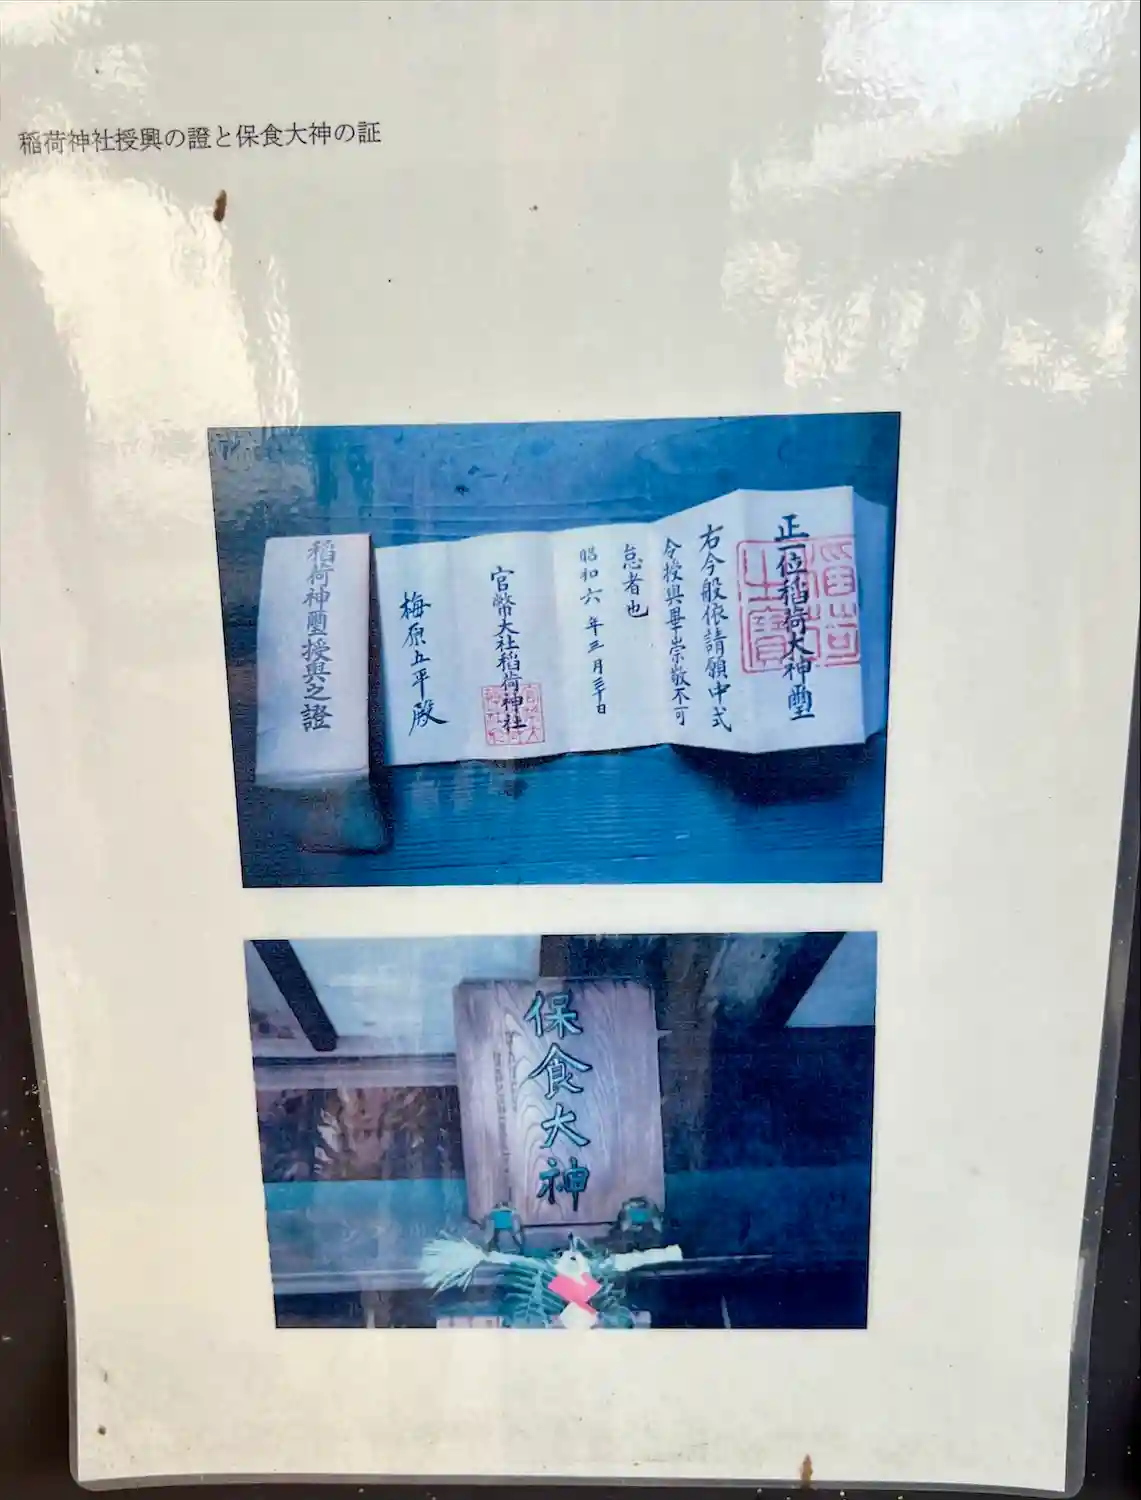 稲荷神社授興の證と保食大神の証
正一位稲荷大神璽
右今般依請願中式
令授與畢崇敬不可
怠者也
昭和六年三月三十日
官幣大社稲荷神社
梅原五平殿
稲荷神璽授與之證
保食大神